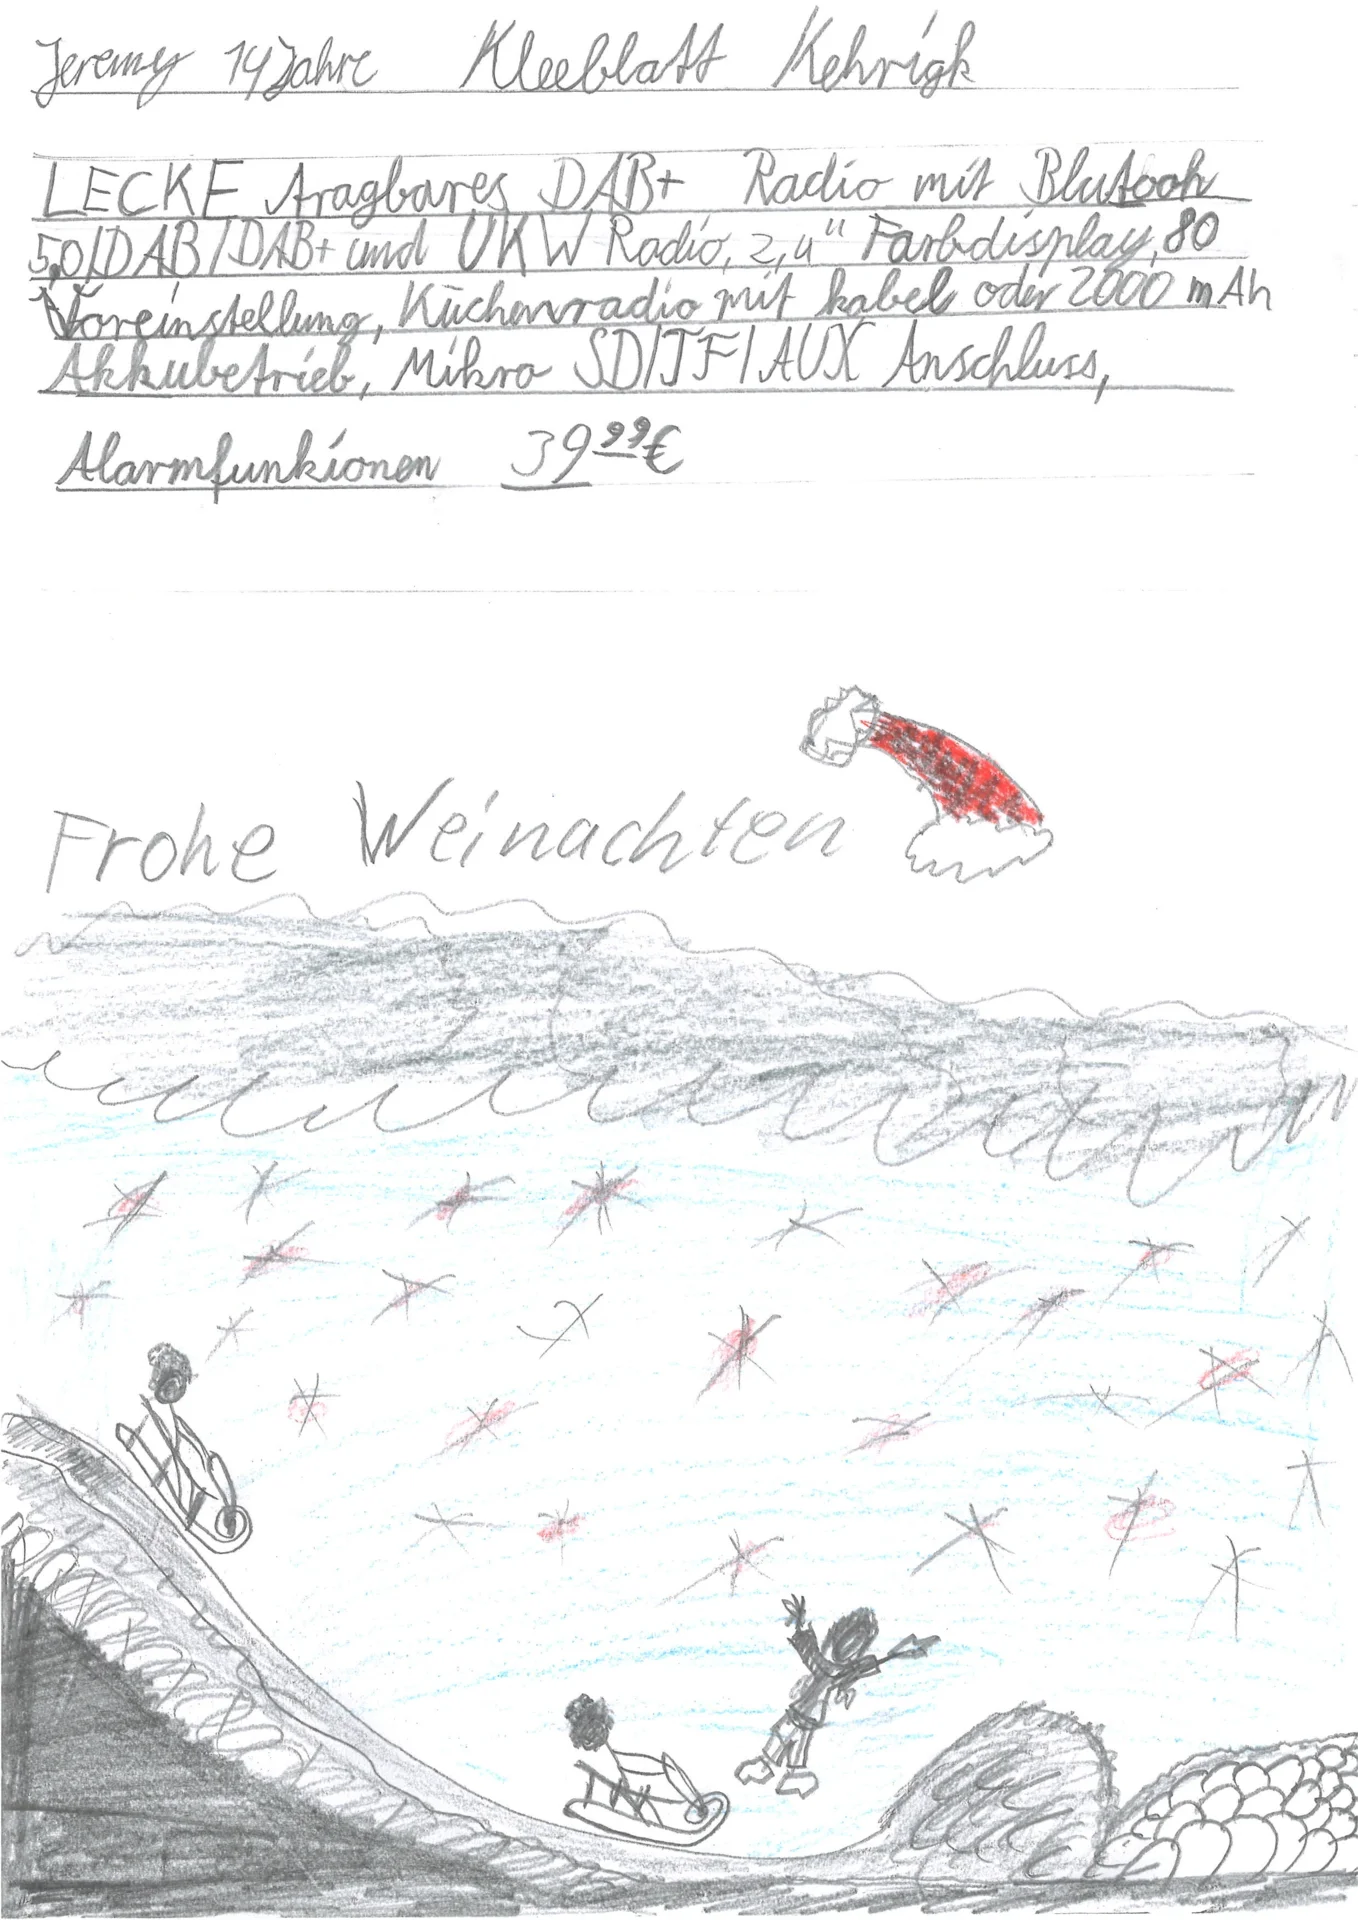 Jeremy 14 Jahre Kleeblatt Kehrigk
LECKE tragbares DAB+ Radio mit Blutooh
5,0/DAB/DAB+ und UKW Radio, 2,4" Farbdisplay, 80
Voreinstellung, Küchenradio mit kabel oder 2000 mAh
Akkubetrieb, Mikro SD/TF/AUX Anschluss,
Alarmfunkionen 39 99 €
Frohe Weinachten